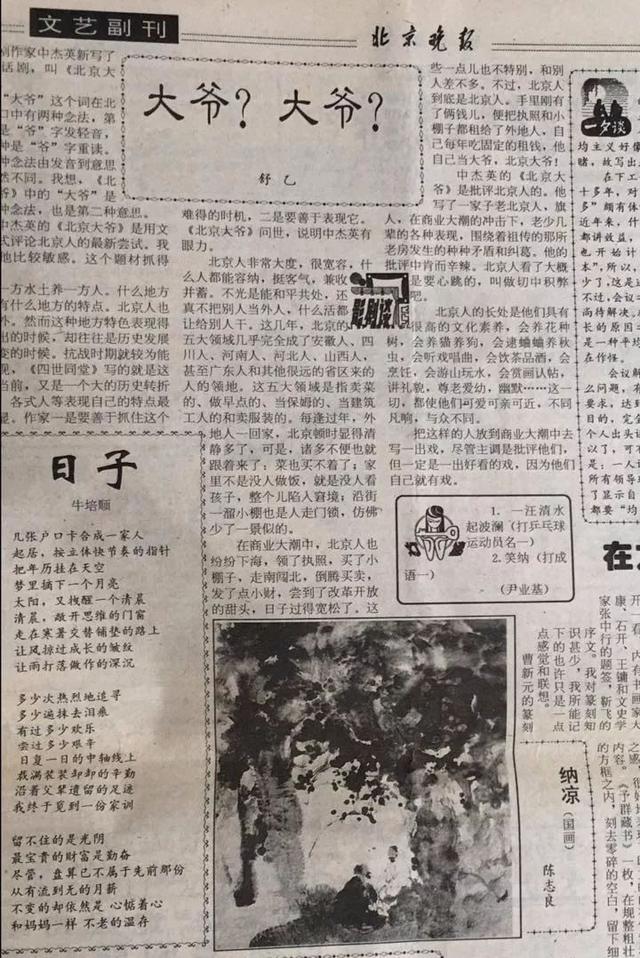 文艺副刊
北京晚报
大爷？大爷？
舒乙
作家中杰英新写了
话剧，叫《北京大
“大爷”这个词在北
口中有两种念法，第
是“爷”字发轻音，
种是“爷”字重读。
种念法由发音到意思
然不同。我想，《北
爷》中的“大爷”是
种念法，也是第二种意思。
《北京大爷》是用文
式评论北京人的最新尝试。我
他比较敏感。这个题材抓得
一方水土养一方人。什么地方
有什么地方的特点。北京人也
外。然而这种地方特色表现得
出的时候，却往往是历史发展
变的时候。抗战时期就较为能
现，《四世同堂》写的就是这
当前，又是一个大的历史转折
各式人等表现自己的特点最
。作家一是要善于抓住这个
难得的时机，二是要善于表现它。
《北京大爷》问世，说明中杰英有
眼力。
北京人非常大度，很宽容，什
么人都能容纳，挺客气，兼收
并蓄。不光是能和平共处，还
真不把别人当外人，什么活都
让给别人干。这几年，北京的
五大领域几乎完全成了安徽人、四
川人、河南人、河北人、山西人，
甚至广东人和其他很远的省区来的
人的领地。这五大领域是指卖菜
的、做早点的、当保姆的、当建筑
工人的和卖服装的。每逢过年，外
地人一回家，北京顿时显得清
静多了，可是，诸多不便也就
跟着来了；菜也买不着了；家
里不是没人做饭，就是没人看
孩子，整个儿陷入窘境；沿街
一溜小棚也是人走门锁，仿佛
少了一景似的。
在商业大潮中，北京人也
纷纷下海，领了执照，买了小
棚子，走南闯北，倒腾买卖，
发了点小财，尝到了改革开放
的甜头，日子过得宽松了。这
些一点儿也不特别，和别
人差不多。不过，北京人
到底是北京人。手里刚有
了俩钱儿，便把执照和小
棚子都租给了外地人，自
己每年吃固定的租钱，他
自己当大爷，北京大爷！
中杰英的《北京大
爷》是批评北京人的。他
写了一家子老北京人，旗
人，在商业大潮的冲击下，老少几
辈的各种表现，围绕着祖传的那所
老房发生的种种矛盾和纠葛。他的
批评中肯而辛辣。北京人看了大概
是要心跳的，叫做切中积弊
吧。
影剧谈
北京人的长处是他们具有
很高的文化素养，会养花种
树，会养猫养狗，会逮蛐蛐养秋
虫，会听戏唱曲，会饮茶品酒，会
烹饪，会游山玩水，会赏画认帖，
讲礼貌，尊老爱幼，幽默……这一
切，都使他们可爱可亲可近，不同
凡响，与众不同。
把这样的人放到商业大潮中去
写一出戏，尽管主调是批评他们，
但一定是一出好看的戏，因为他们
自己就有戏。
日子
牛培顺
几张户口卡合成一家人
起居，按立体快节奏的指针
把年历挂在天空
梦里摘下一个月亮
太阳，又拽醒一个清晨
清晨，敞开思维的门窗
走在寒暑交替铺垫的路上
让风掠过成长的皱纹
让雨打落做作的深沉
多少次热烈地追寻
多少遍抹去泪乘
有过多少欢乐
尝过多少艰辛
日复一日的中轴线上
载满装装卸卸的辛勤
沿着父辈遗留的足迹
我终于觅到一份家训
留不住的是光阴
最宝贵的财富是勤奋
尽管，盘算已不属于先前那份
从有流到无的月薪
不变的却依然是 心惦着心
和妈妈一样 不老的温存
1. 一汪清水
起波澜（打乒乓球
运动员名一）
2.笑纳（打成
语一）
（尹业基）
纳凉
（国画）
陈志良
一夕谈
均主义好像
在下工
十多年，对
多”颇有体
近年来，什
都讲效益，
也开始计
本”，所以，
少了，这是过
不过，会议
高待解决。
长的原因
是一种平均
在作怪。
会议解
么问题，有
要求，达到
目的，完全
个人出头
以了，可不
是：一人
所有领导
了显示自
都要“均
在
康、石开、王镛和文史学
家张中行的题签，靳飞的
序文。我对篆刻知
识甚少，我所能记
下的也许只是一点
点感觉和联想。
曹新元的篆刻
内容。《予群藏书》一枚，在规整粗壮
的方框之内，刻去零碎的空白，留下细